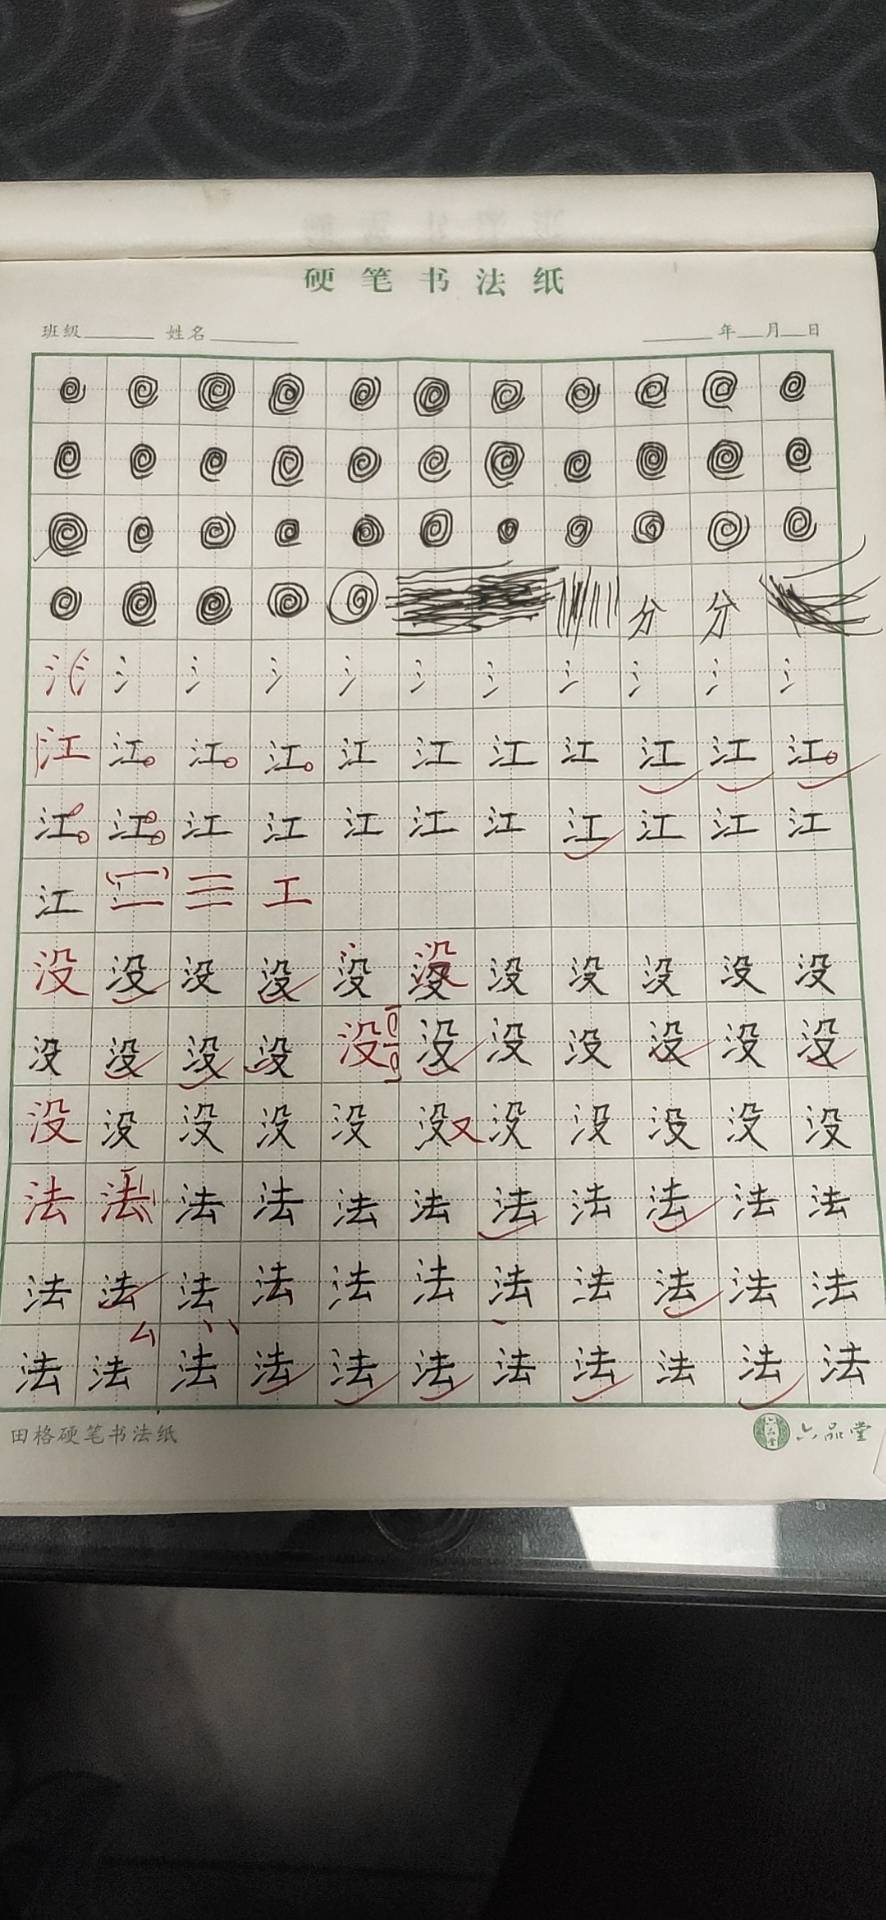 硬笔书法纸
班级 姓名 年 月 日
分 分
氵 氵 氵 氵 氵 氵 氵 氵 氵 氵 氵
江 江 江 江 江 江 江 江 江 江 江
江 江 江 江 江 江 江 江 江 江 江
江 工
没 没 没 没 没 没 没 没 没 没 没
没 没 没 没 没 没 没 没 没 没 没
没 没 没 没 没 没 又 没 没 没 没 没
法 法 法 法 法 法 法 法 法 法 法
法 法 法 法 法 法 法 法 法 法 法
法 法 法 法 法 法 法 法 法 法 法
田格硬笔书法纸 六品堂